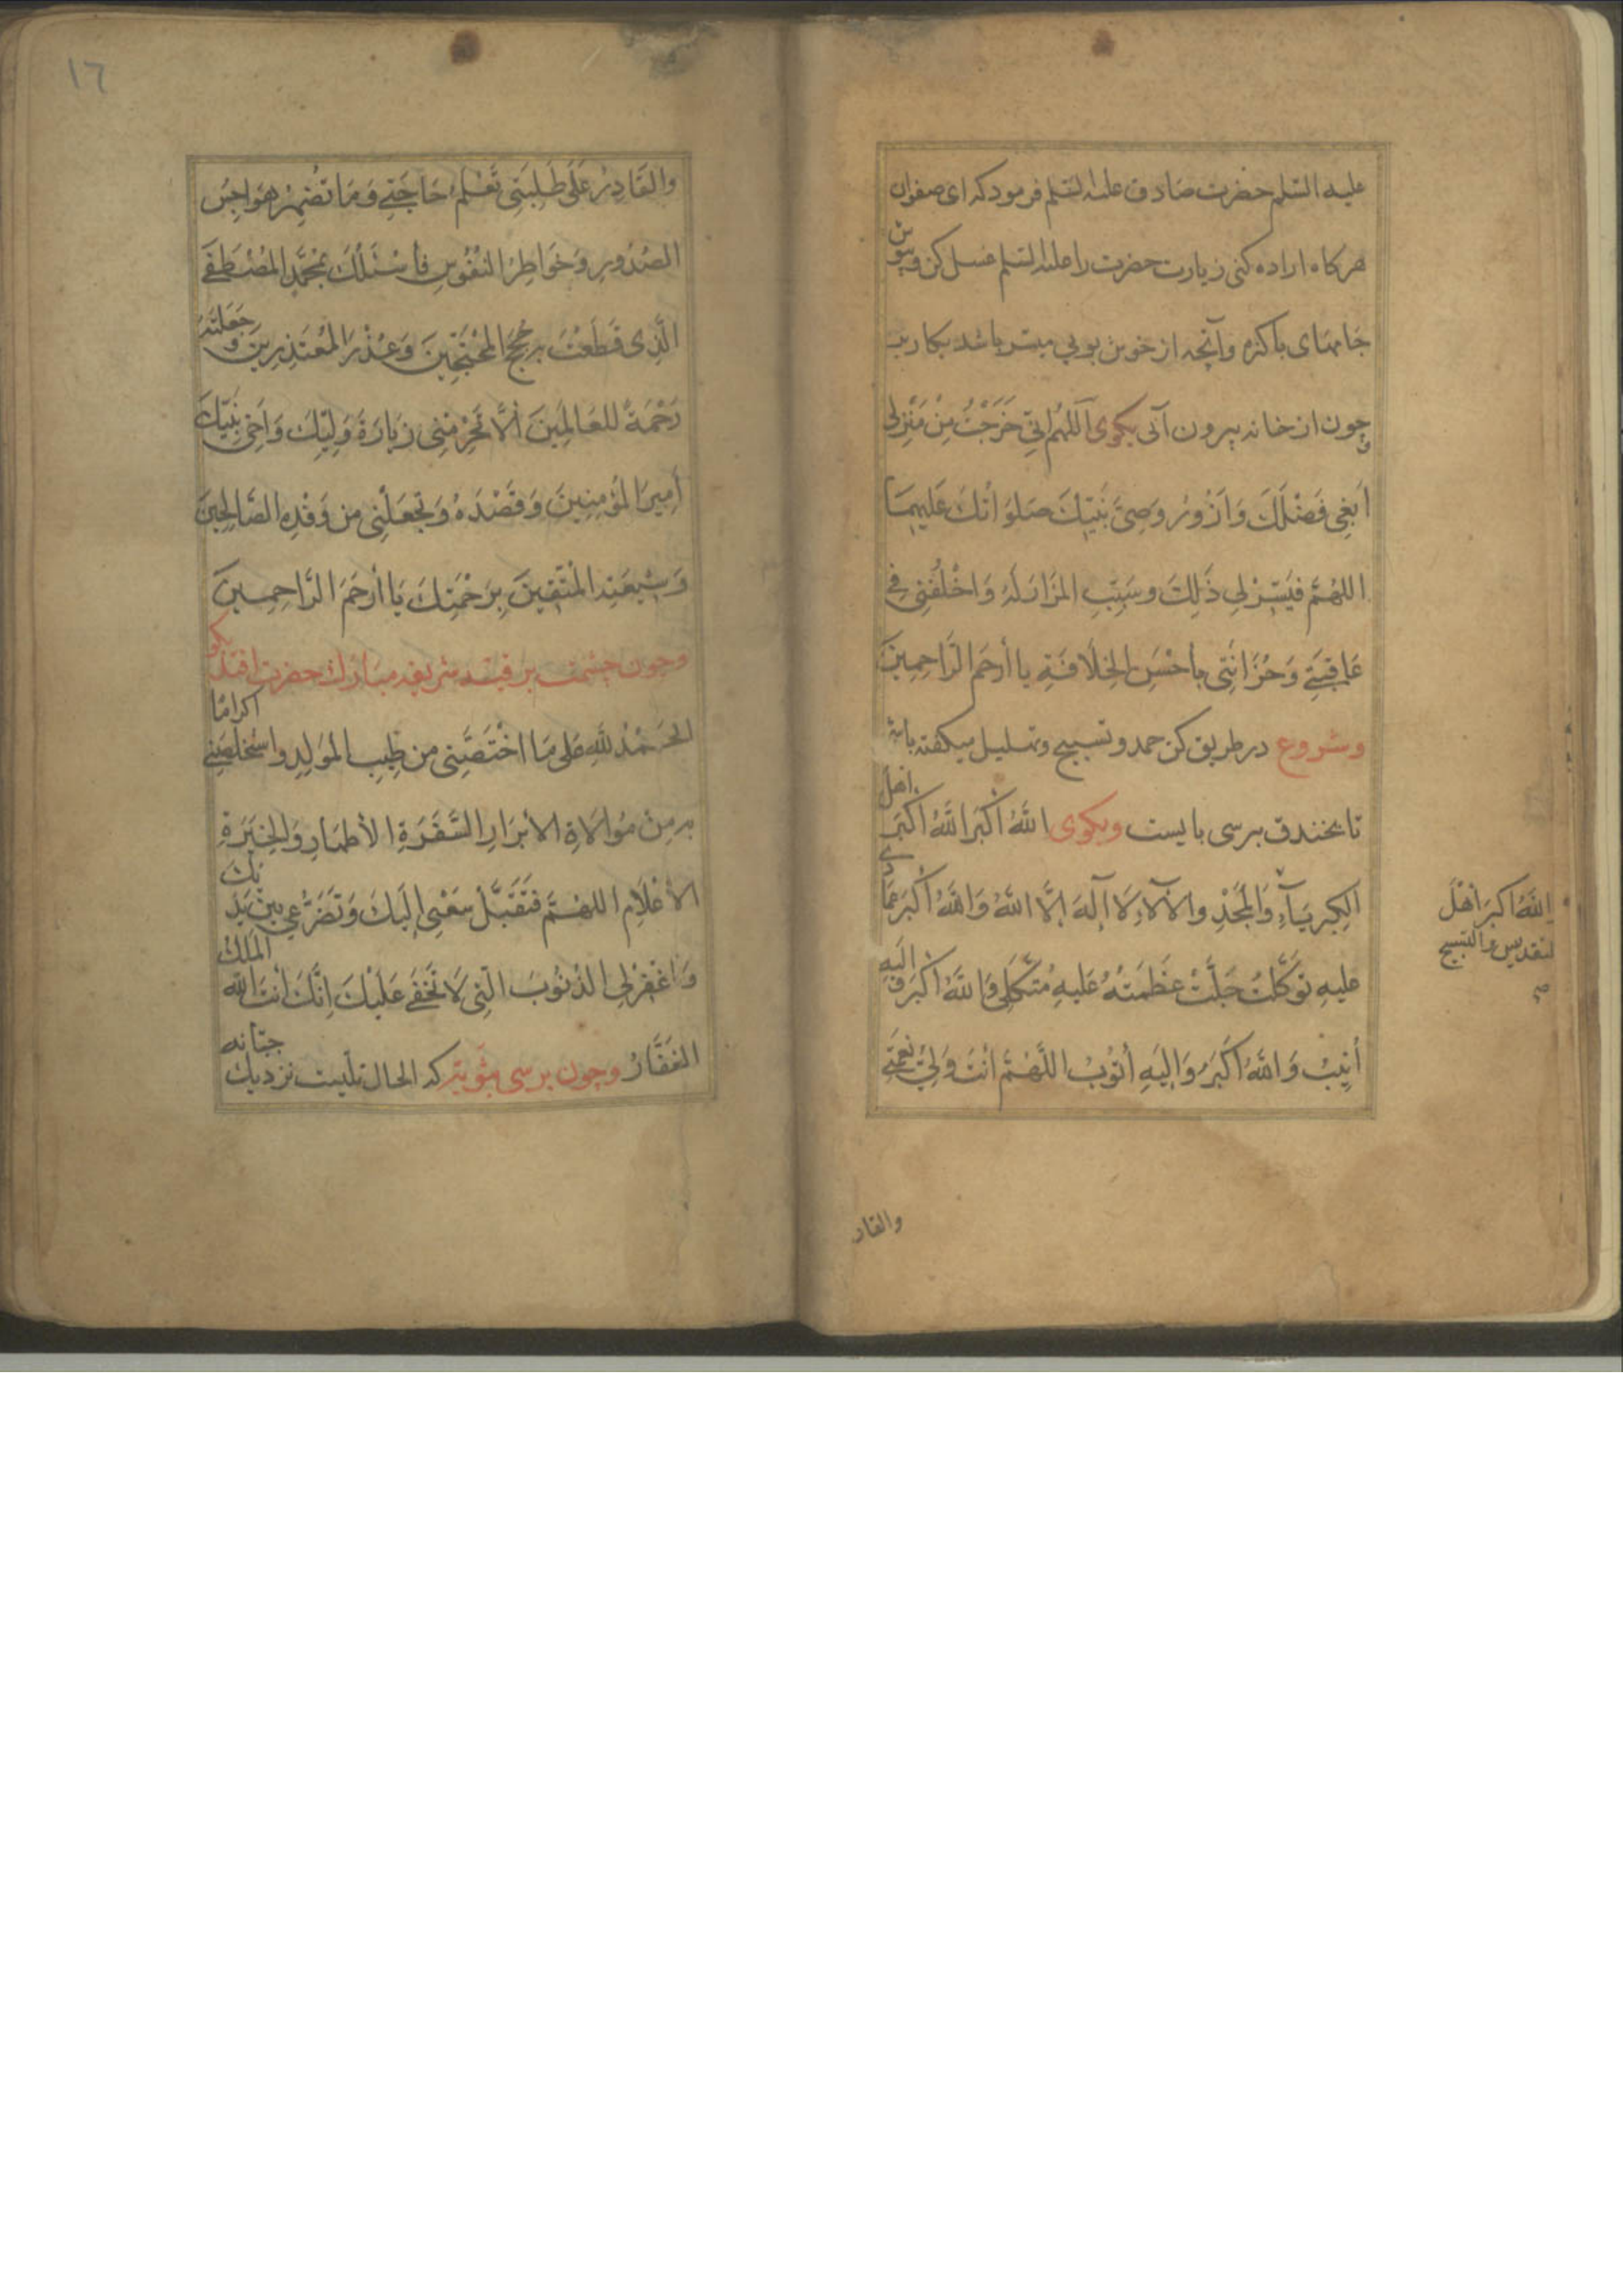 عليه السّلم حضرت صادق عليه السّلم فرمود كه اى صفوان
هركاه اراده كنى زيارت حضرت را عليه السّلم غسل كن وبپوش
جامهاى پاكزه وآنچه از خوش بويى ميسر باشد بكار بر
وچون از خانه بيرون آئى بكوى اَللّهُمَّ اِنّى خَرَجْتُ مِنْ مَنْزِلى
اَبْغى فَضْلَكَ وَاَزُورُ وَصِىَّ نَبِيِّكَ صَلَوٰاتُكَ عَلَيْهِمَا
اللهُمَّ فَيَسِّرْ لى ذَلِكَ وسَبِّبِ المَزَارَ لَهُ وَاخْلُفْنى فى
عَاقِبَتى وَحُزَانَتى بِأَحْسَنِ الخِلَافَةِ يا أرحَمَ الرَّاحِمِينَ
وشروع در طريق كن حمد وتسبيح وتهليل ميكفته باش
تا بخندق برسى بايست وبكوى اللهُ أَكْبَرُ اللهُ أَكْبَرُ اَهْلَ
الكِبْرِيَآءِ وَالمَجْدِ والآلَآءِ لَا آلهَ إلَّا اللهُ وَاللهُ أكْبَرُ عِمَادى
عليهِ تَوَكَّلْتُ جَلَّتْ عَظَمَتُهُ عَليهِ مُتَّكَلى وَاللهُ اَكْبَرُ وَاِلَيهِ
أنِيبُ وَاللهُ أكبَرُ وَاِلَيهِ أَتُوبُ اللّهُمَّ اَنْتَ وَلِىُّ نِعْمَتى
اللهُ اكبَر اَهْلَ
التقديس والتسبيح
صح
والقادر
١٦
والقَادِرُ عَلَى طَلِبَتى تَعْلَمُ حَاجَتى وَمَا تُضْمِرُ هَوَاجِسُ
الصُدُورِ وَخَوَاطِرُ النُفُوسِ فأَسْئَلُكَ بمُحَمَّدٍ المُصْطَفَى
الَّذِى قَطَعْتَ بِهِ حُجَجَ المُحْتَجِّينَ وَعُذْرَ المُعْتَذِرِينَ وجَعَلتَهُ
رَحْمَةً للعَالَمِينَ ألَّا تَحْرِمَنِى زِيَارَةَ وَلِيِّكَ وَاَخى نَبِيِّكَ
أَمِيرِ المُؤمِنِينَ وَقَصْدَهُ وَتَجعَلَنِى من وَفْدِهِ الصَّالِحِينَ
وَشِيعَتِهِ المُتَّقِينَ بِرَحْمَتِكَ يَا أرحَمَ الرَّاحِمِينَ
وچون چشمت بر قبّه شريفه مباركه حضرت افتد بكو
الحَمْدُ للهِ عَلى مَا اخْتَصَّنِى من طِيبِ المَولِدِ واسْتَخلَصَنى اكرامًا
بهِ مِنْ مُوالَاةِ الأبْرَارِ السَّفَرَةِ الأطهَارِ وَالخِيَرَةِ
الأعْلَامِ اللهُمَّ فَتَقَبَّلْ سَعْيى إِلَيكَ وَتَضَرُّعى بين يَدَيكَ
وَاغْفِرْ لى الذُنُوبَ الَّتِى لَا تَخْفَى عَلَيْكَ اِنَّكَ أنتَ اللهُ المَلِكُ
الغَفَّارُ وچون برسى بثويّه كه الحال تليست نزديك جبّانه